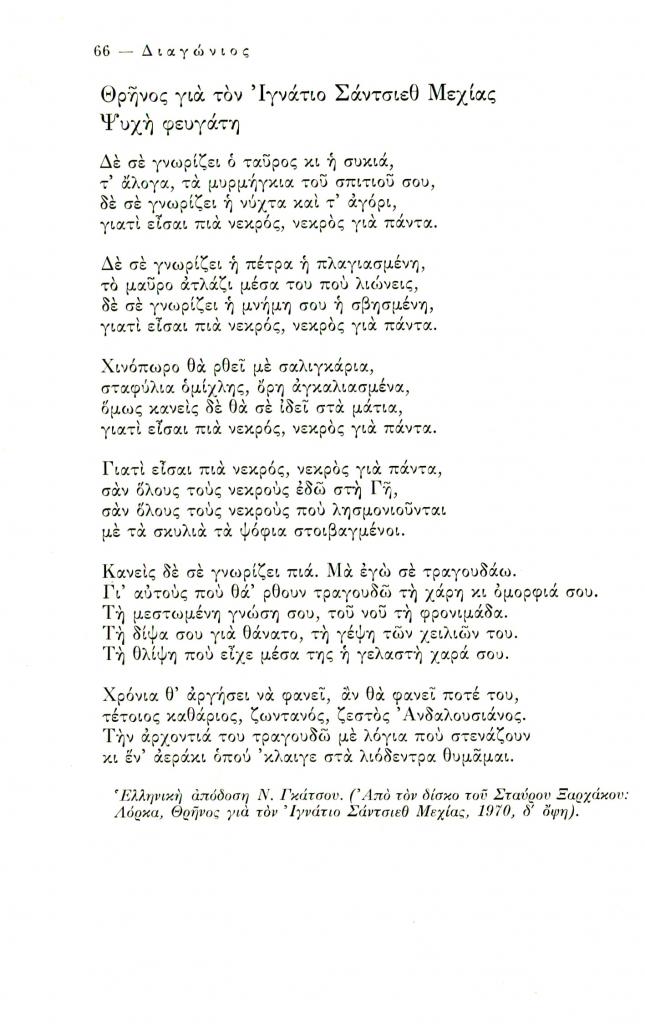 66 — Διαγώνιος
Θρῆνος γιὰ τὸν Ἰγνάτιο Σάντσιεθ Μεχίας
Ψυχὴ φευγάτη
Δὲ σὲ γνωρίζει ὁ ταῦρος κι ἡ συκιά,
τ' ἄλογα, τὰ μυρμήγκια τοῦ σπιτιοῦ σου,
δὲ σὲ γνωρίζει ἡ νύχτα καὶ τ' ἀγόρι,
γιατὶ εἶσαι πιὰ νεκρός, νεκρὸς γιὰ πάντα.
Δὲ σὲ γνωρίζει ἡ πέτρα ἡ πλαγιασμένη,
τὸ μαῦρο ἀτλάζι μέσα του ποὺ λιώνεις,
δὲ σὲ γνωρίζει ἡ μνήμη σου ἡ σβησμένη,
γιατὶ εἶσαι πιὰ νεκρός, νεκρὸς γιὰ πάντα.
Χινόπωρο θὰ ρθεῖ μὲ σαλιγκάρια,
σταφύλια ὁμίχλης, ὄρη ἀγκαλιασμένα,
ὅμως κανεὶς δὲ θὰ σὲ ἰδεῖ στὰ μάτια,
γιατὶ εἶσαι πιὰ νεκρός, νεκρὸς γιὰ πάντα.
Γιατὶ εἶσαι πιὰ νεκρός, νεκρὸς γιὰ πάντα,
σὰν ὅλους τοὺς νεκροὺς ἐδῶ στὴ Γῆ,
σὰν ὅλους τοὺς νεκροὺς ποὺ λησμονιοῦνται
μὲ τὰ σκυλιὰ τὰ ψόφια στοιβαγμένοι.
Κανεὶς δὲ σὲ γνωρίζει πιά. Μὰ ἐγὼ σὲ τραγουδάω.
Γι' αὐτοὺς ποὺ θά' ρθουν τραγουδῶ τὴ χάρη κι ὀμορφιά σου.
Τὴ μεστωμένη γνώση σου, τοῦ νοῦ τὴ φρονιμάδα.
Τὴ δίψα σου γιὰ θάνατο, τὴ γέψη τῶν χειλιῶν του.
Τὴ θλίψη ποὺ εἶχε μέσα της ἡ γελαστὴ χαρά σου.
Χρόνια θ' ἀργήσει νὰ φανεῖ, ἂν θὰ φανεῖ ποτέ του,
τέτοιος καθάριος, ζωντανός, ζεστὸς Ἀνδαλουσιάνος.
Τὴν ἀρχοντιά του τραγουδῶ μὲ λόγια ποὺ στενάζουν
κι ἕν' ἀεράκι ὁπού 'κλαιγε στὰ λιόδεντρα θυμᾶμαι.
Ἑλληνικὴ ἀπόδοση Ν. Γκάτσου. (Ἀπὸ τὸν δίσκο τοῦ Σταύρου Ξαρχάκου:
Λόρκα, Θρῆνος γιὰ τὸν Ἰγνάτιο Σάντσιεθ Μεχίας, 1970, δ' ὄψη).